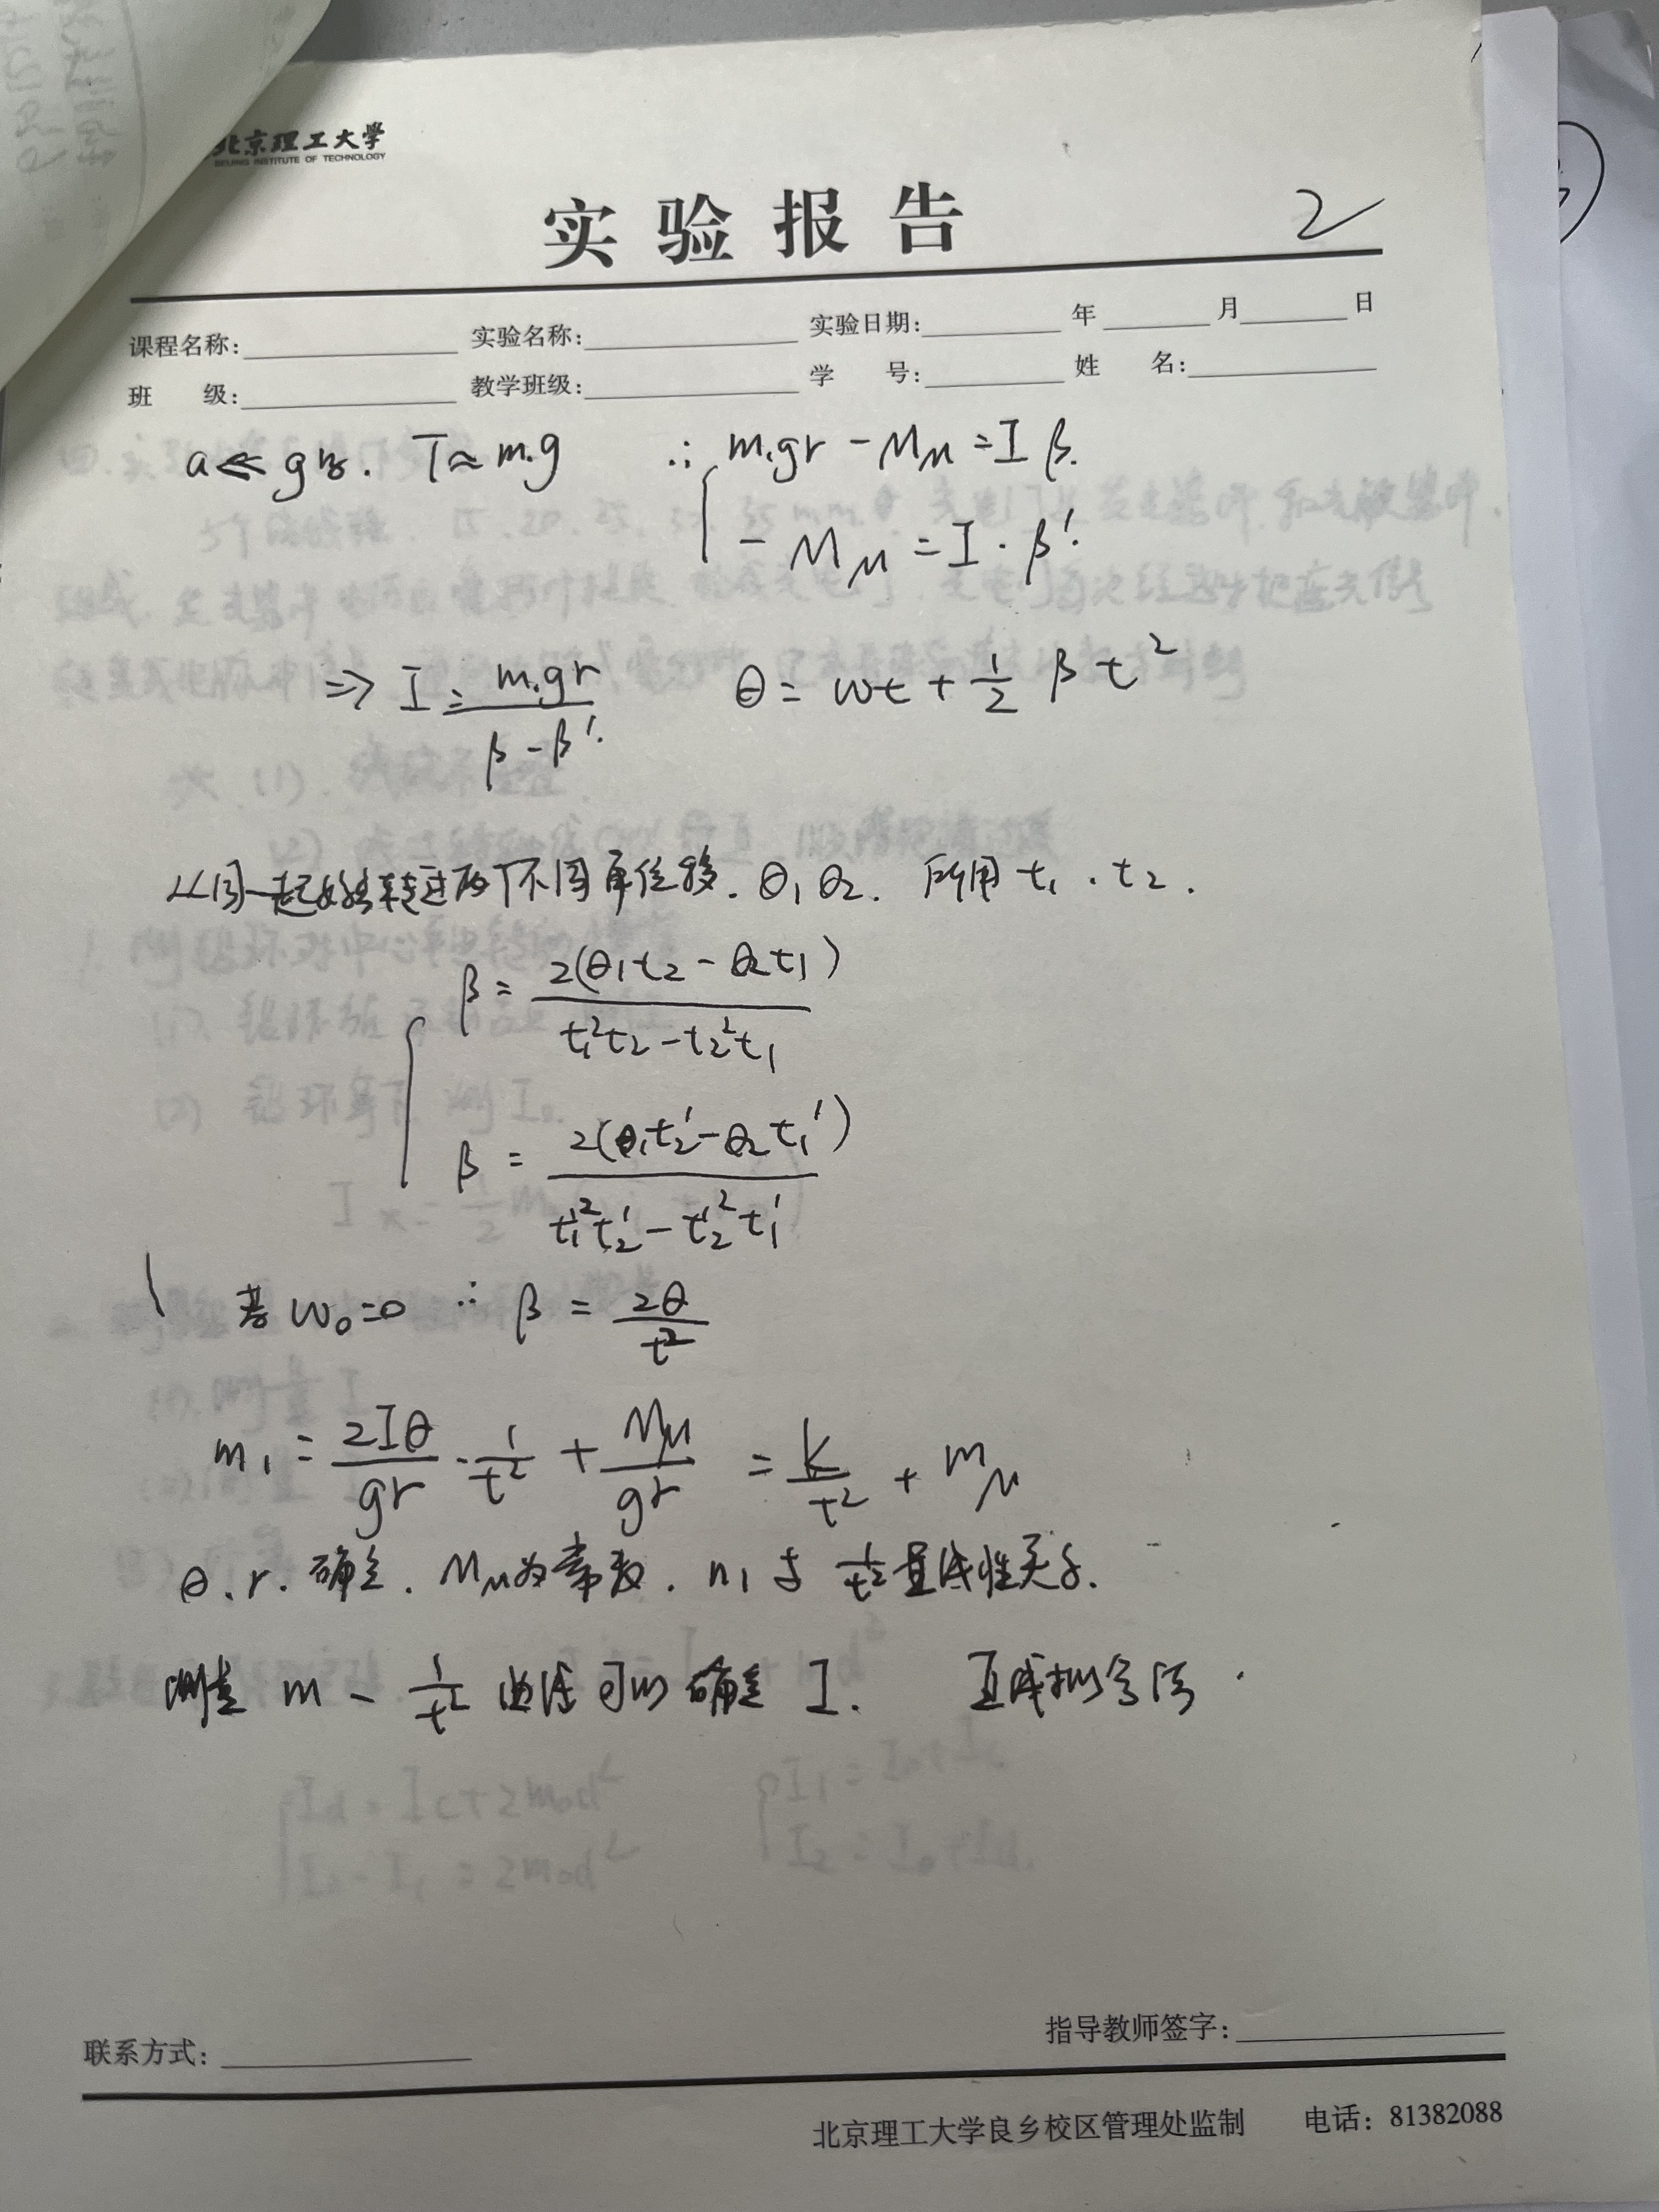 北京理工大学
BEIJING INSTITUTE OF TECHNOLOGY
实验报告
2
课程名称: 实验名称: 实验日期: 年 月 日
班 级: 教学班级: 学 号: 姓 名:
a ≪ g时. T ≈ m₁g ∴ m₁gr - Mμ = Iβ.
- Mμ = I · β'.
⇒ I = m₁gr / (β - β'). θ = ωt + 1/2 βt²
从同一起始转过两个不同角位移. θ₁ θ₂. 所用 t₁ . t₂ .
β = 2(θ₁t₂ - θ₂t₁) / (t₁²t₂ - t₂²t₁)
β = 2(θ₁t₂' - θ₂t₁') / (t₁'²t₂' - t₂'²t₁')
若 ω₀=0 ∴ β = 2θ / t²
m₁ = 2Iθ/gr · 1/t² + Mμ/gr = k/t² + mμ
θ. r. 确定. Mμ为常数. m₁ 与 1/t² 呈线性关系.
测量 m - 1/t² 曲线可以确定 I. 直线拟合法.
联系方式: 指导教师签字:
北京理工大学良乡校区管理处监制 电话: 81382088